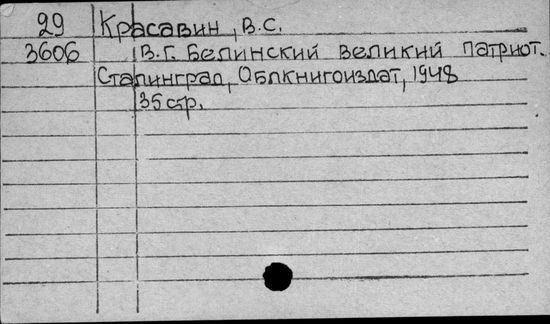 29 Красавин, В.С.
3606 В.Г. Белинский великий патриот.
Сталинград, Облкнигоиздат, 1948
35 стр.